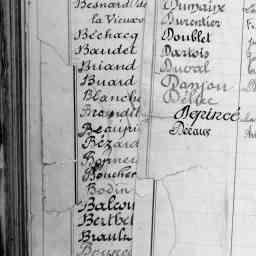 Besnard (de
la Vieuxv
Béchacq
Baudet
Briand
Buard
Blanche
Beaupr
Bézard
Bonner
Boucher
Bodin
Balcou
Berthel
Braula
Brunea
Dumaine
Durentier
Doublet
Dartois
Duval
Danjou
Déliac
Deprincé
Decaux